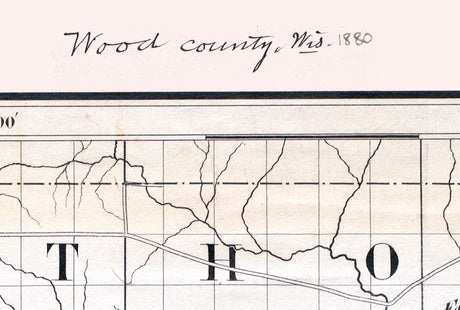 Wood county, Wis. 1880
00'
T H O